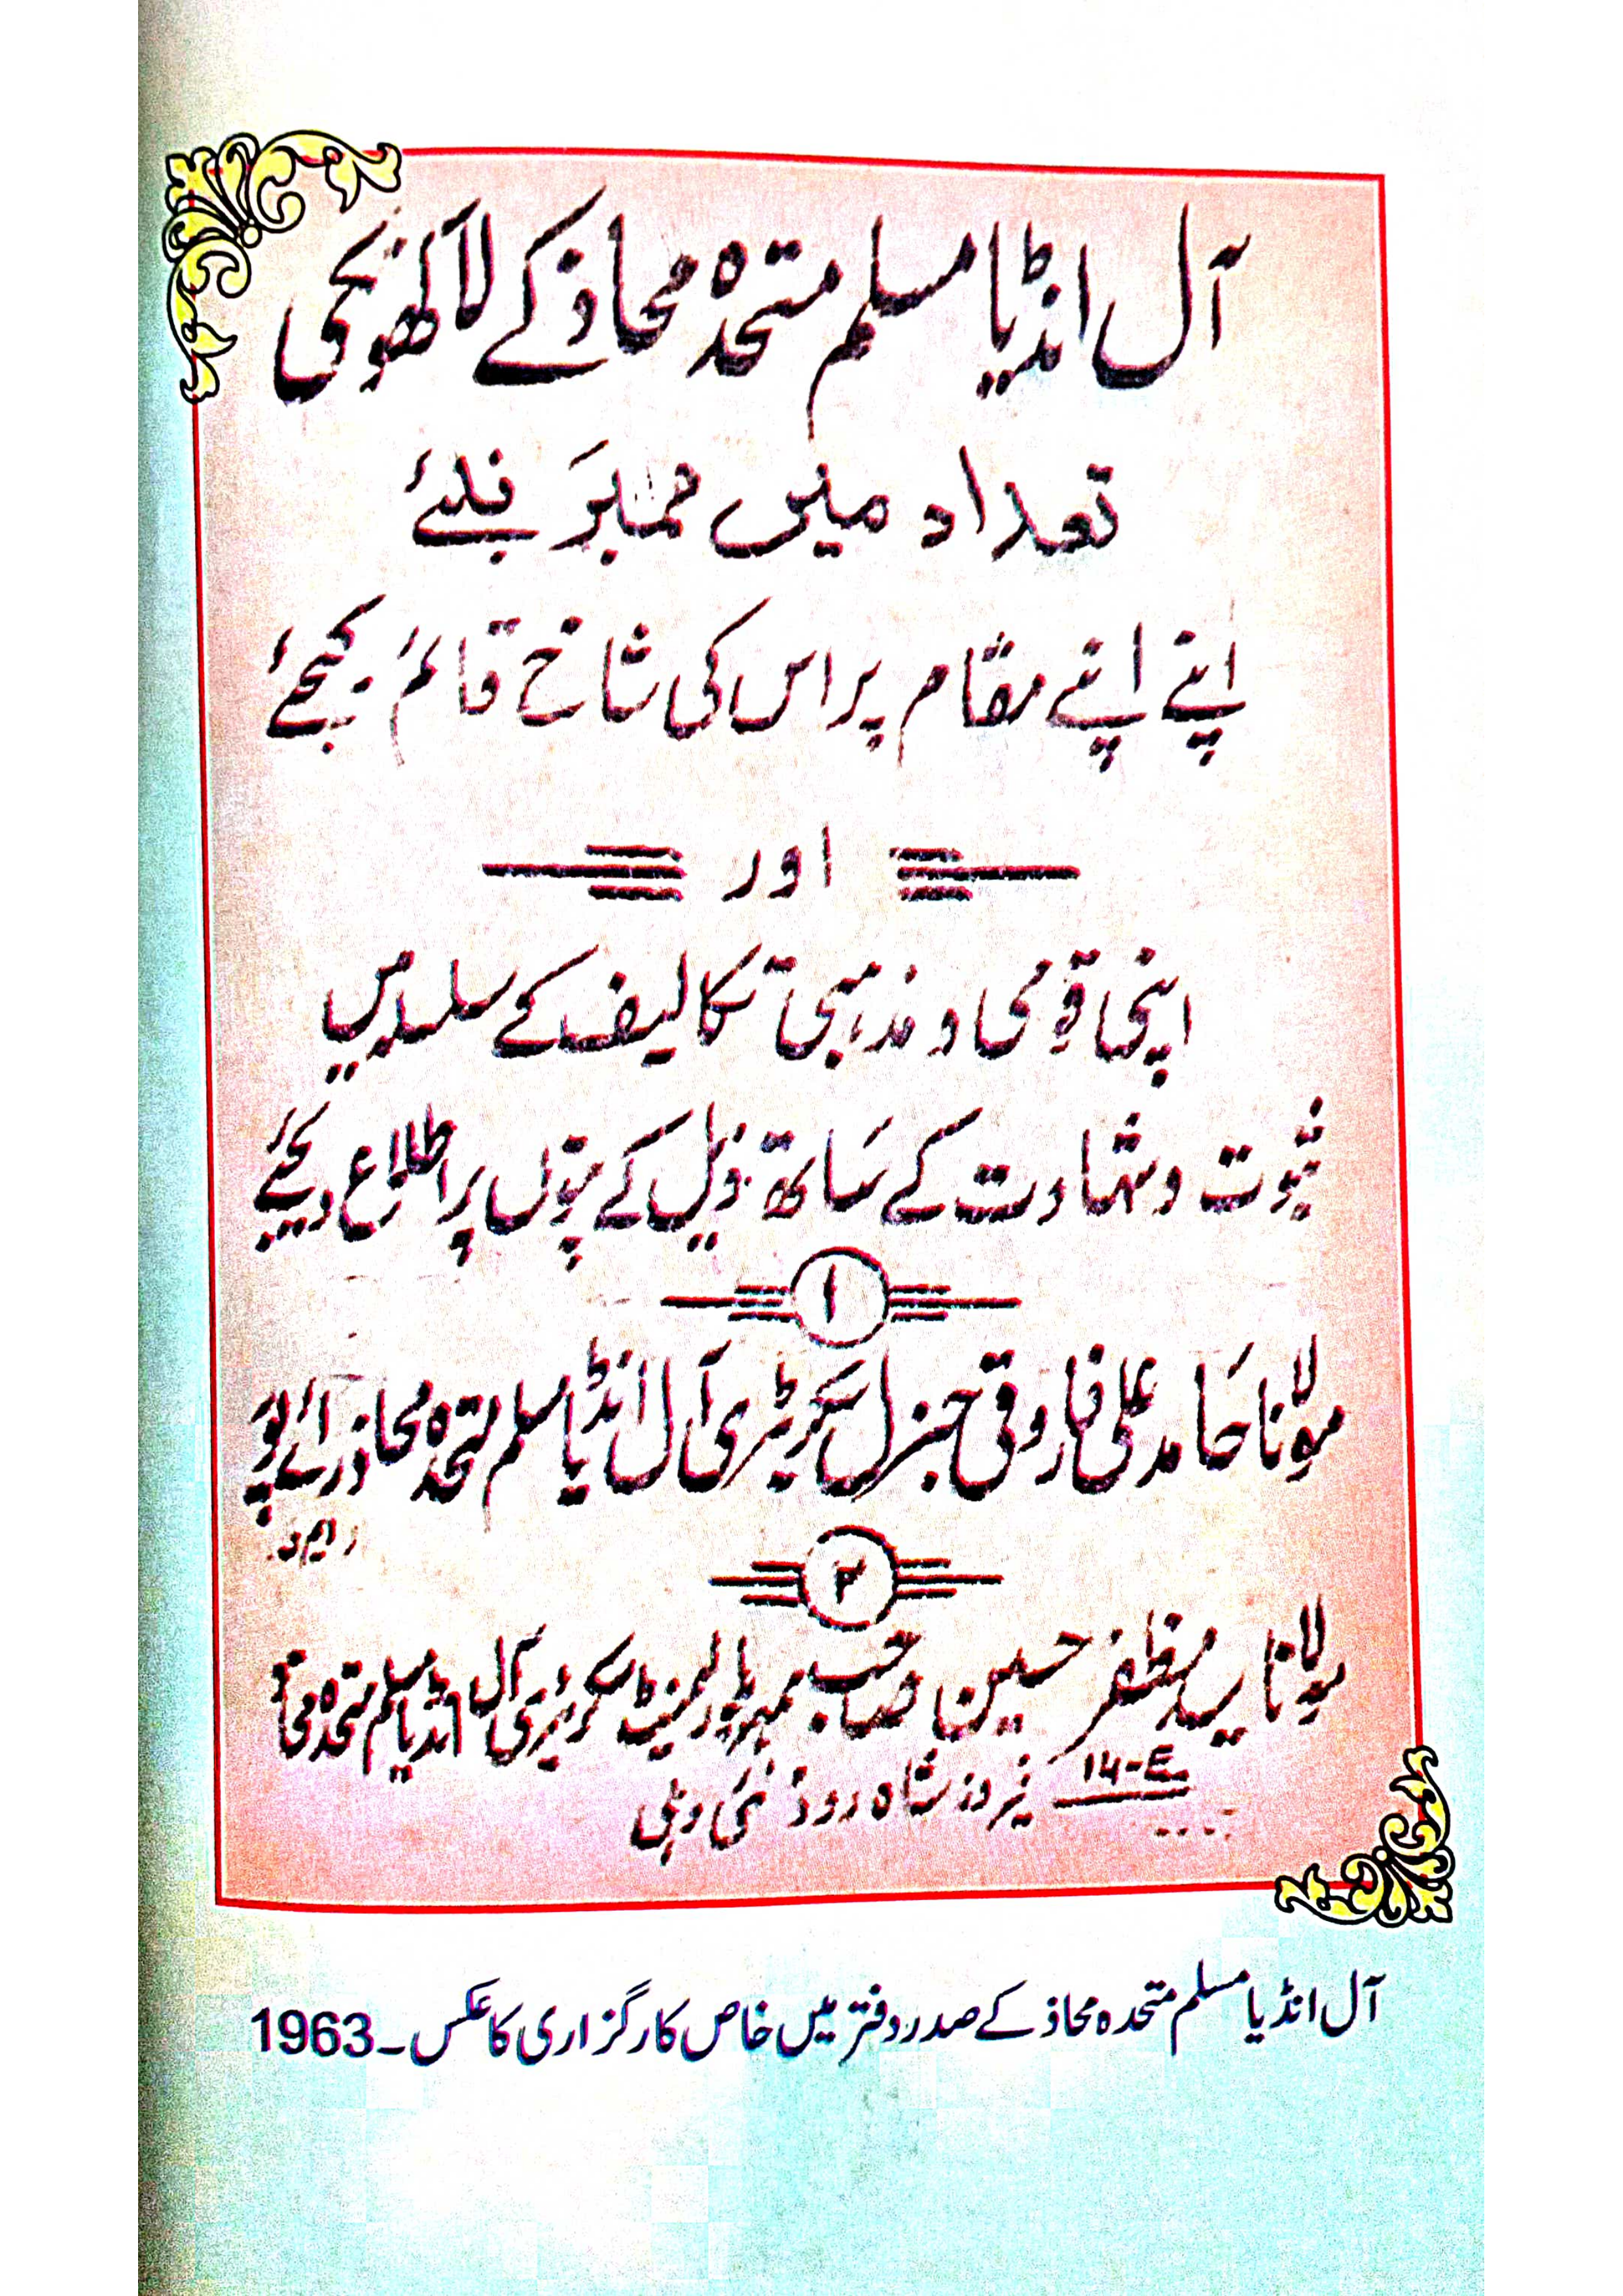 آل انڈیا مسلم متحدہ محاذ کے لاکھو نکی
تعداد میں ممبر بنئے
اپنے اپنے مقام پر اس کی شاخ قائم کیجئے
اور
اپنی قومی و مذہبی تکالیف کے سلسلہ میں
ثبوت و شہادت کے ساتھ ذیل کے پتوں پر اطلاع دیجئے
۱
مولانا حامد علی فاروقی جنرل سکریٹری آل انڈیا مسلم متحدہ محاذ رائے پور
۲
مولانا سید مظفر حسین صاحب ممبر پارلیمنٹ سکریٹری آل انڈیا مسلم متحدہ محاذ
14-E فیروز شاہ روڈ نئی دہلی
آل انڈیا مسلم متحدہ محاذ کے صدر دفتر میں خاص کارگزاری کا عکس۔1963